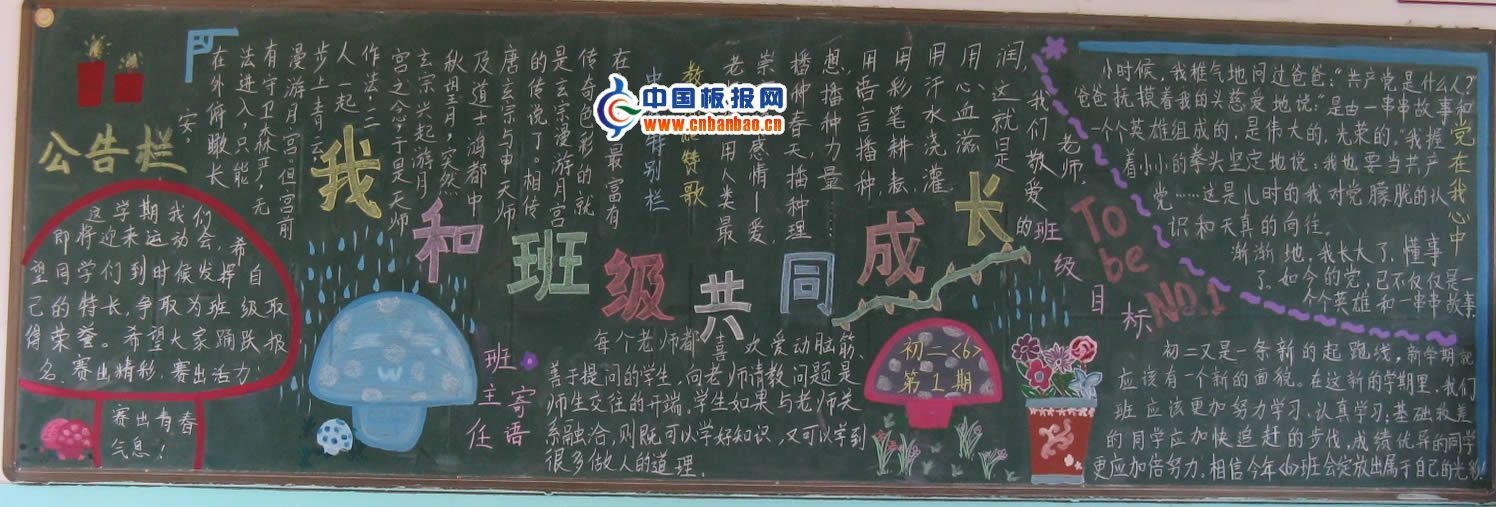 公告栏
这学期我们
即将迎来运动会,希
望同学们到时候发挥自
己的特长,争取为班级取
得荣誉。希望大家踊跃报
名,赛出精彩,赛出活力!
赛出青春
气息!
我和班级共同成长
中国板报网
www.cnbanbao.cn
中
特别栏
教
赞歌
在
最富有
传奇色彩的就
是玄宗漫游月宫
的传说了。相传
唐玄宗与申天师
及道士鸿都中
秋望月,突然
玄宗兴起游月
宫之念,于是天师
作法,三
人一起
步上青云
漫游月宫,但宫前
有守卫森严,无
法进入,只能
在外俯瞰长
安,
老
师,
我们敬爱的
润,这就是
用心血滋
用汗水浇灌,
用彩笔耕耘,
用语言播种
想,播种力量
播种春天,播种理
崇
感情—爱,
老
用人类最
班主任寄语
每个老师都喜欢爱动脑筋、
善于提问的学生,向老师请教问题是
师生交往的开端。学生如果与老师关
系融洽,则既可以学好知识,又可以学到
很多做人的道理。
初二<6>
第1期
班级目标
To
be
NO.1
党在我心中
小时候,我稚气地问过爸爸:"共产党是什么人?"
爸爸抚摸着我的头慈爱地说:"是由一串串故事和
一个英雄组成的,是伟大的,光荣的。"我握
着小小的拳头坚定地说:我也要当共产
党……这是儿时的我对党朦胧的认
识和天真的向往。
渐渐地,我长大了,懂事
了。如今的党,已不仅仅是一
个个英雄和一串串故事
初二又是一条新的起跑线,新学期就
应该有一个新的面貌。在这新的学期里,我们
班应该更加努力学习,认真学习,基础较差
的同学应加快追赶的步伐,成绩优异的同学
更应加倍努力,相信今年<6>班会绽放出属于自己的光彩!